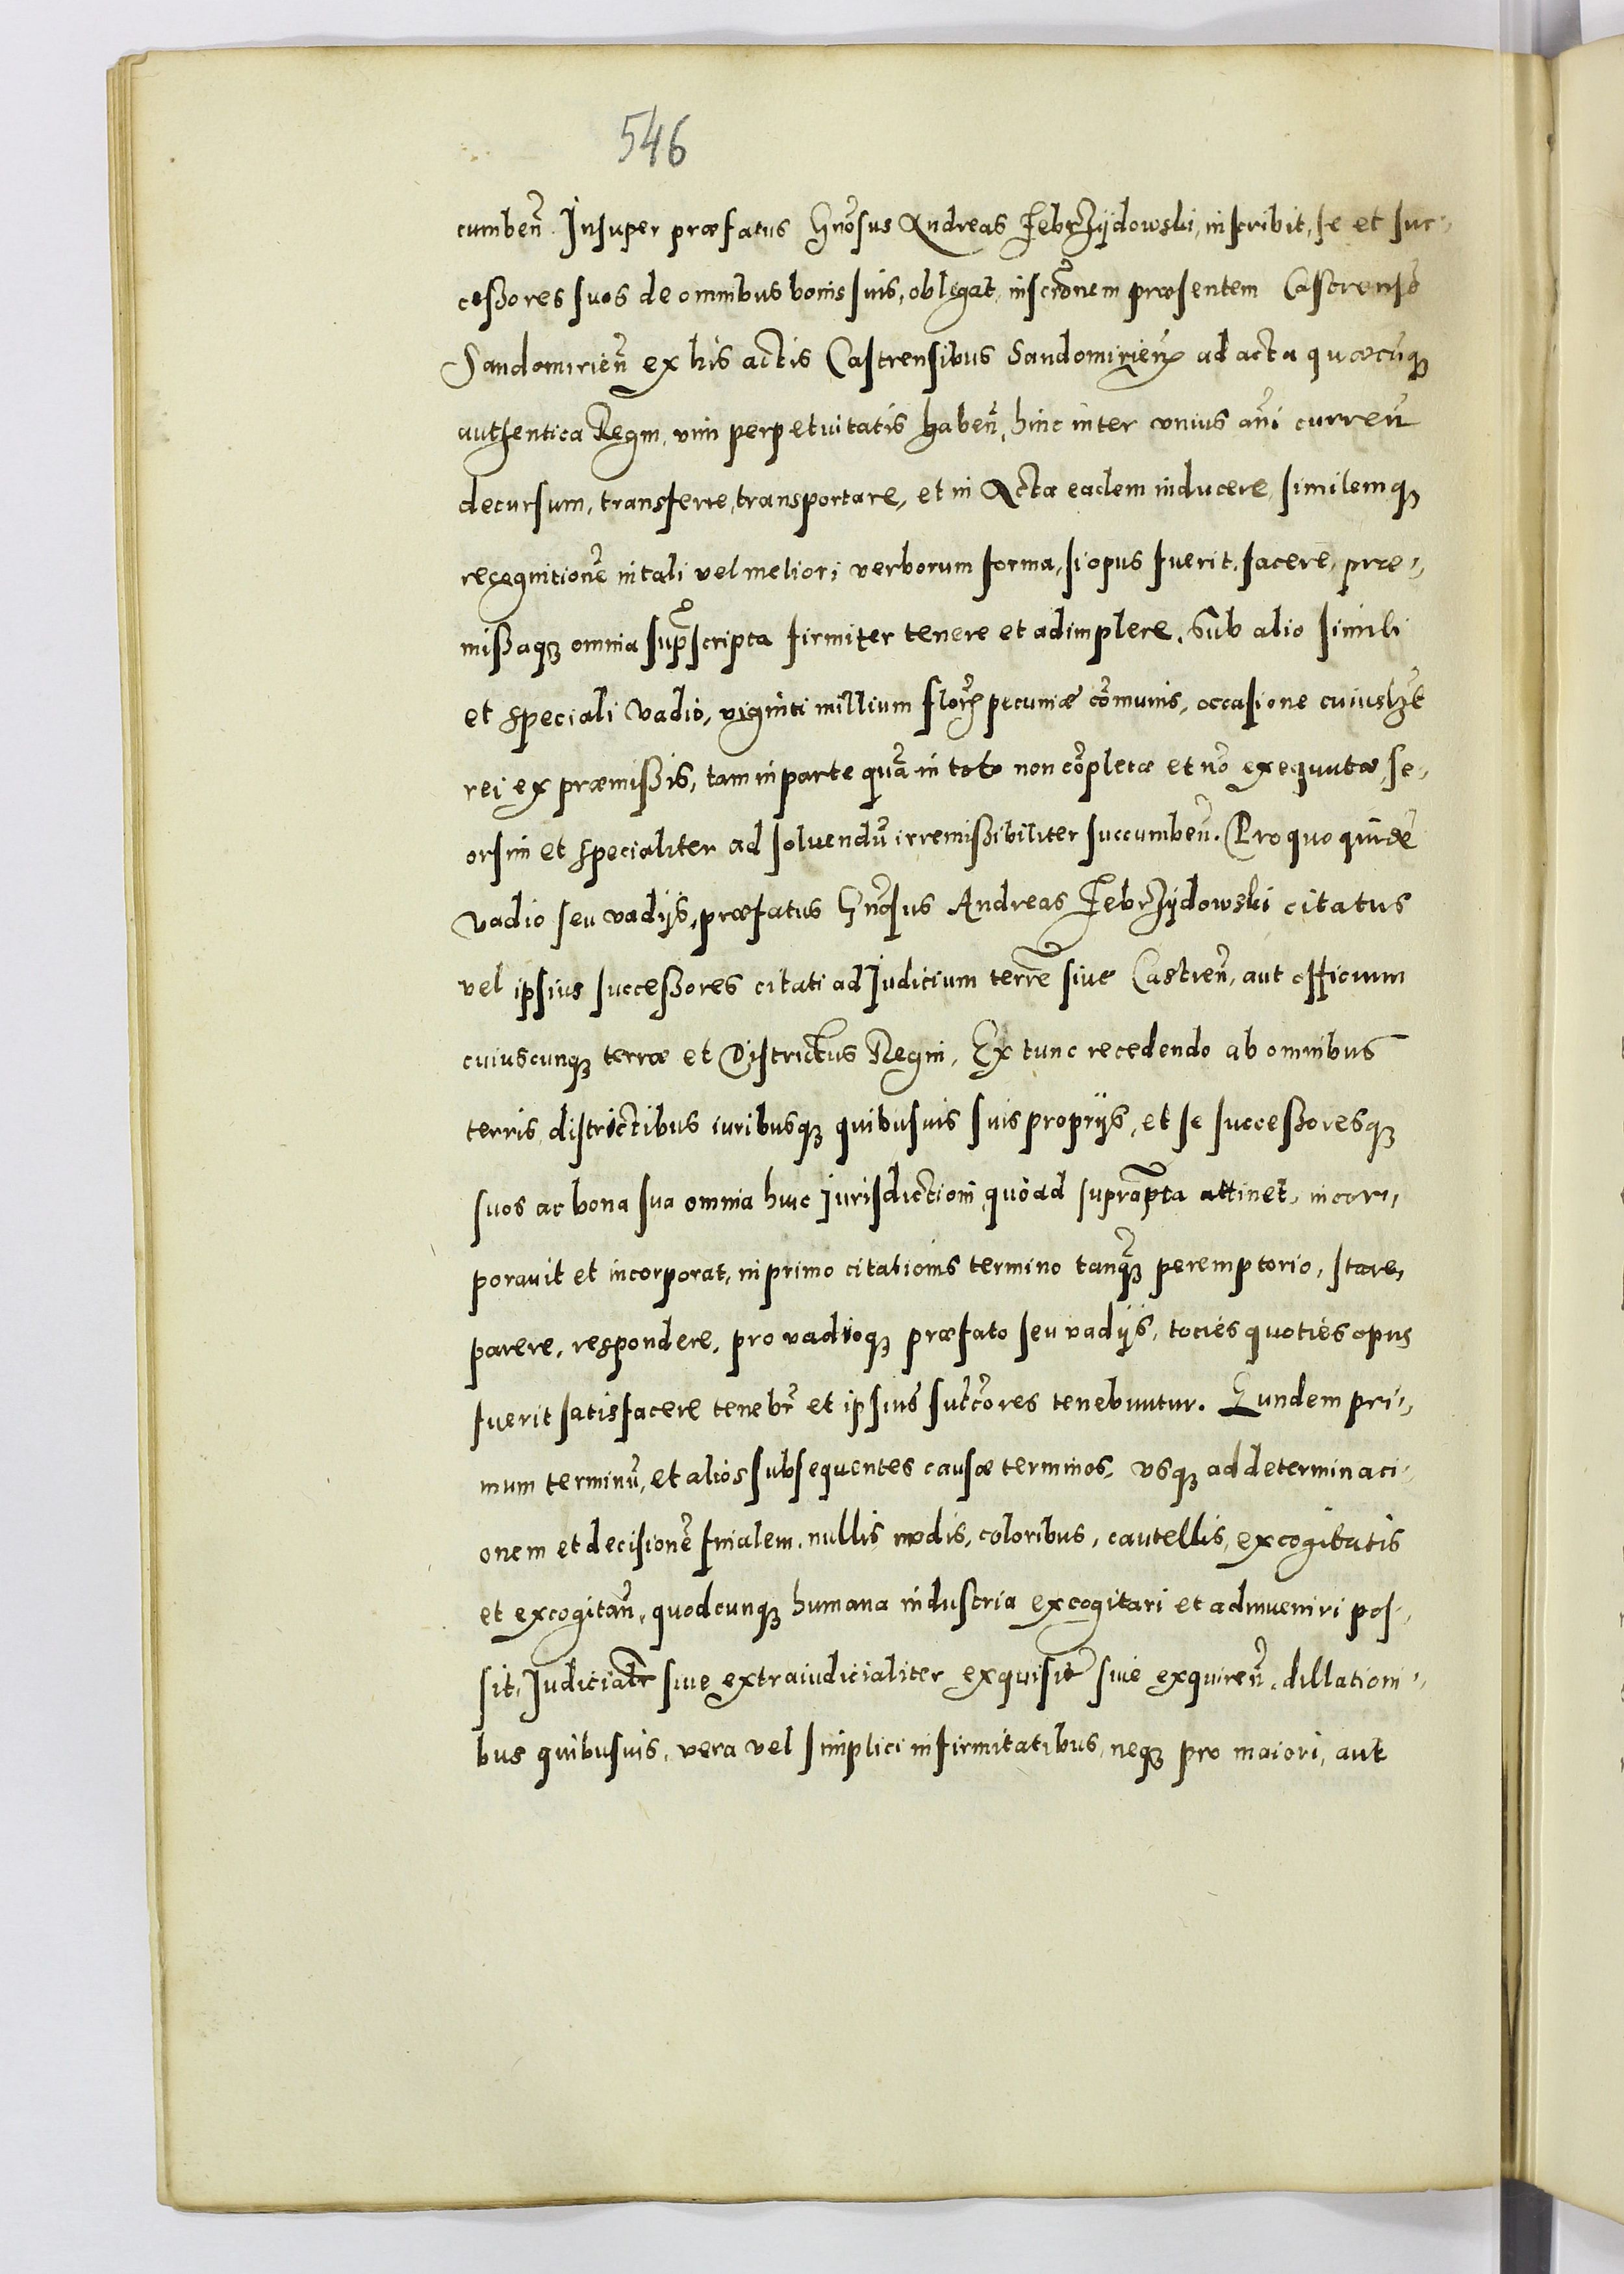 546
cumbeñ. Insuper præfatus Gn̄osus Andreas Febrzÿdowski, inscribit, se et suc-
ceßores suos de omnibus bonis suis, oblegat, inscr̄onem præsentem Castrensē
Sandomirieñ ex his actis Castrensibus Sandomirieñ ad acta quæcūq₃
authentica Regni, vim perpetuitatis habeñ, hinc inter vnius ani curreñ
decursum, transferre, transportare, et in Acta eadem inducere, similemq₃
recognitionē in tali vel meliori verborum forma, si opus fuerit, facere, præ-
mißaq₃ omnia supscripta firmiter tenere et adimplere. Sub alio simili
et speciali vadio, viginti millium flor̄ pecuniæ cōmunis, occasione cuiuslȝt
rei ex præmißis, tam in parte quā in toto non cōpletæ et nō exequutæ, se-
orsim et specialiter ad soluendū irremißibiliter succumbeñ. Pro quo quidē
vadio seu vadijs, præfatus Gn̄osus Andreas Febrzÿdowski citatus
vel ipsius succeßores citati ad Judicium terrē siue Castreñ, aut officium
cuiuscunq₃ terræ et Districtus Regni, Ex tunc recedendo ab omnibus
terris, districtibus iuribusq₃ quibusuis suis proprijs, et se succeßoresq₃
suos ac bona sua omnia huic Jurisdictioni, quoad suprapta attinet, incor-
porauit et incorporat, in primo citationis termino tanq̄₃ peremptorio, stare,
parere, respondere, pro vadioq₃ præfato seu vadijs, toties quoties opus
fuerit satisfacere tenebr̄ et ipsius succ̄ores tenebuntur. Eundem pri-
mum terminū, et alios subsequentes causæ terminos, vsq₃ ad determinaci-
onem et decisionē finalem, nullis modis, coloribus, cautellis, excogitatis
et excogitañ, quodcunq₃ humana industria excogitari et adinueniri pos-
sit, Judicialr siue extraiudicialiter exquisit̄ siue exquireñ, dillationi-
bus quibusuis, vera vel simplici infirmitatibus, neq₃ pro maiori, aut